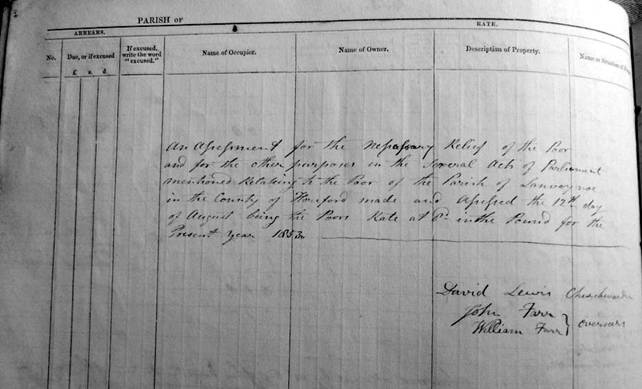 PARISH or
RATE.
ARREARS.
No.
Due, or if excused
£ s. d.
If excused, write the word "excused."
Name of Occupier.
Name of Owner.
Description of Property.
Name or Situation of
An Assessment for the Nessassary Relief of the Poor
and for the other purposes in the Several Acts of Parliament
mentioned Relating to the Poor of the Parish of Lanveynoe
in the County of Hereford made and Assessed the 12th day
of August being the Poors Rate at 8d in the Pound for the
Present Year 1853
David Lewis Churchwarden
John Farr
William Farr } overseers